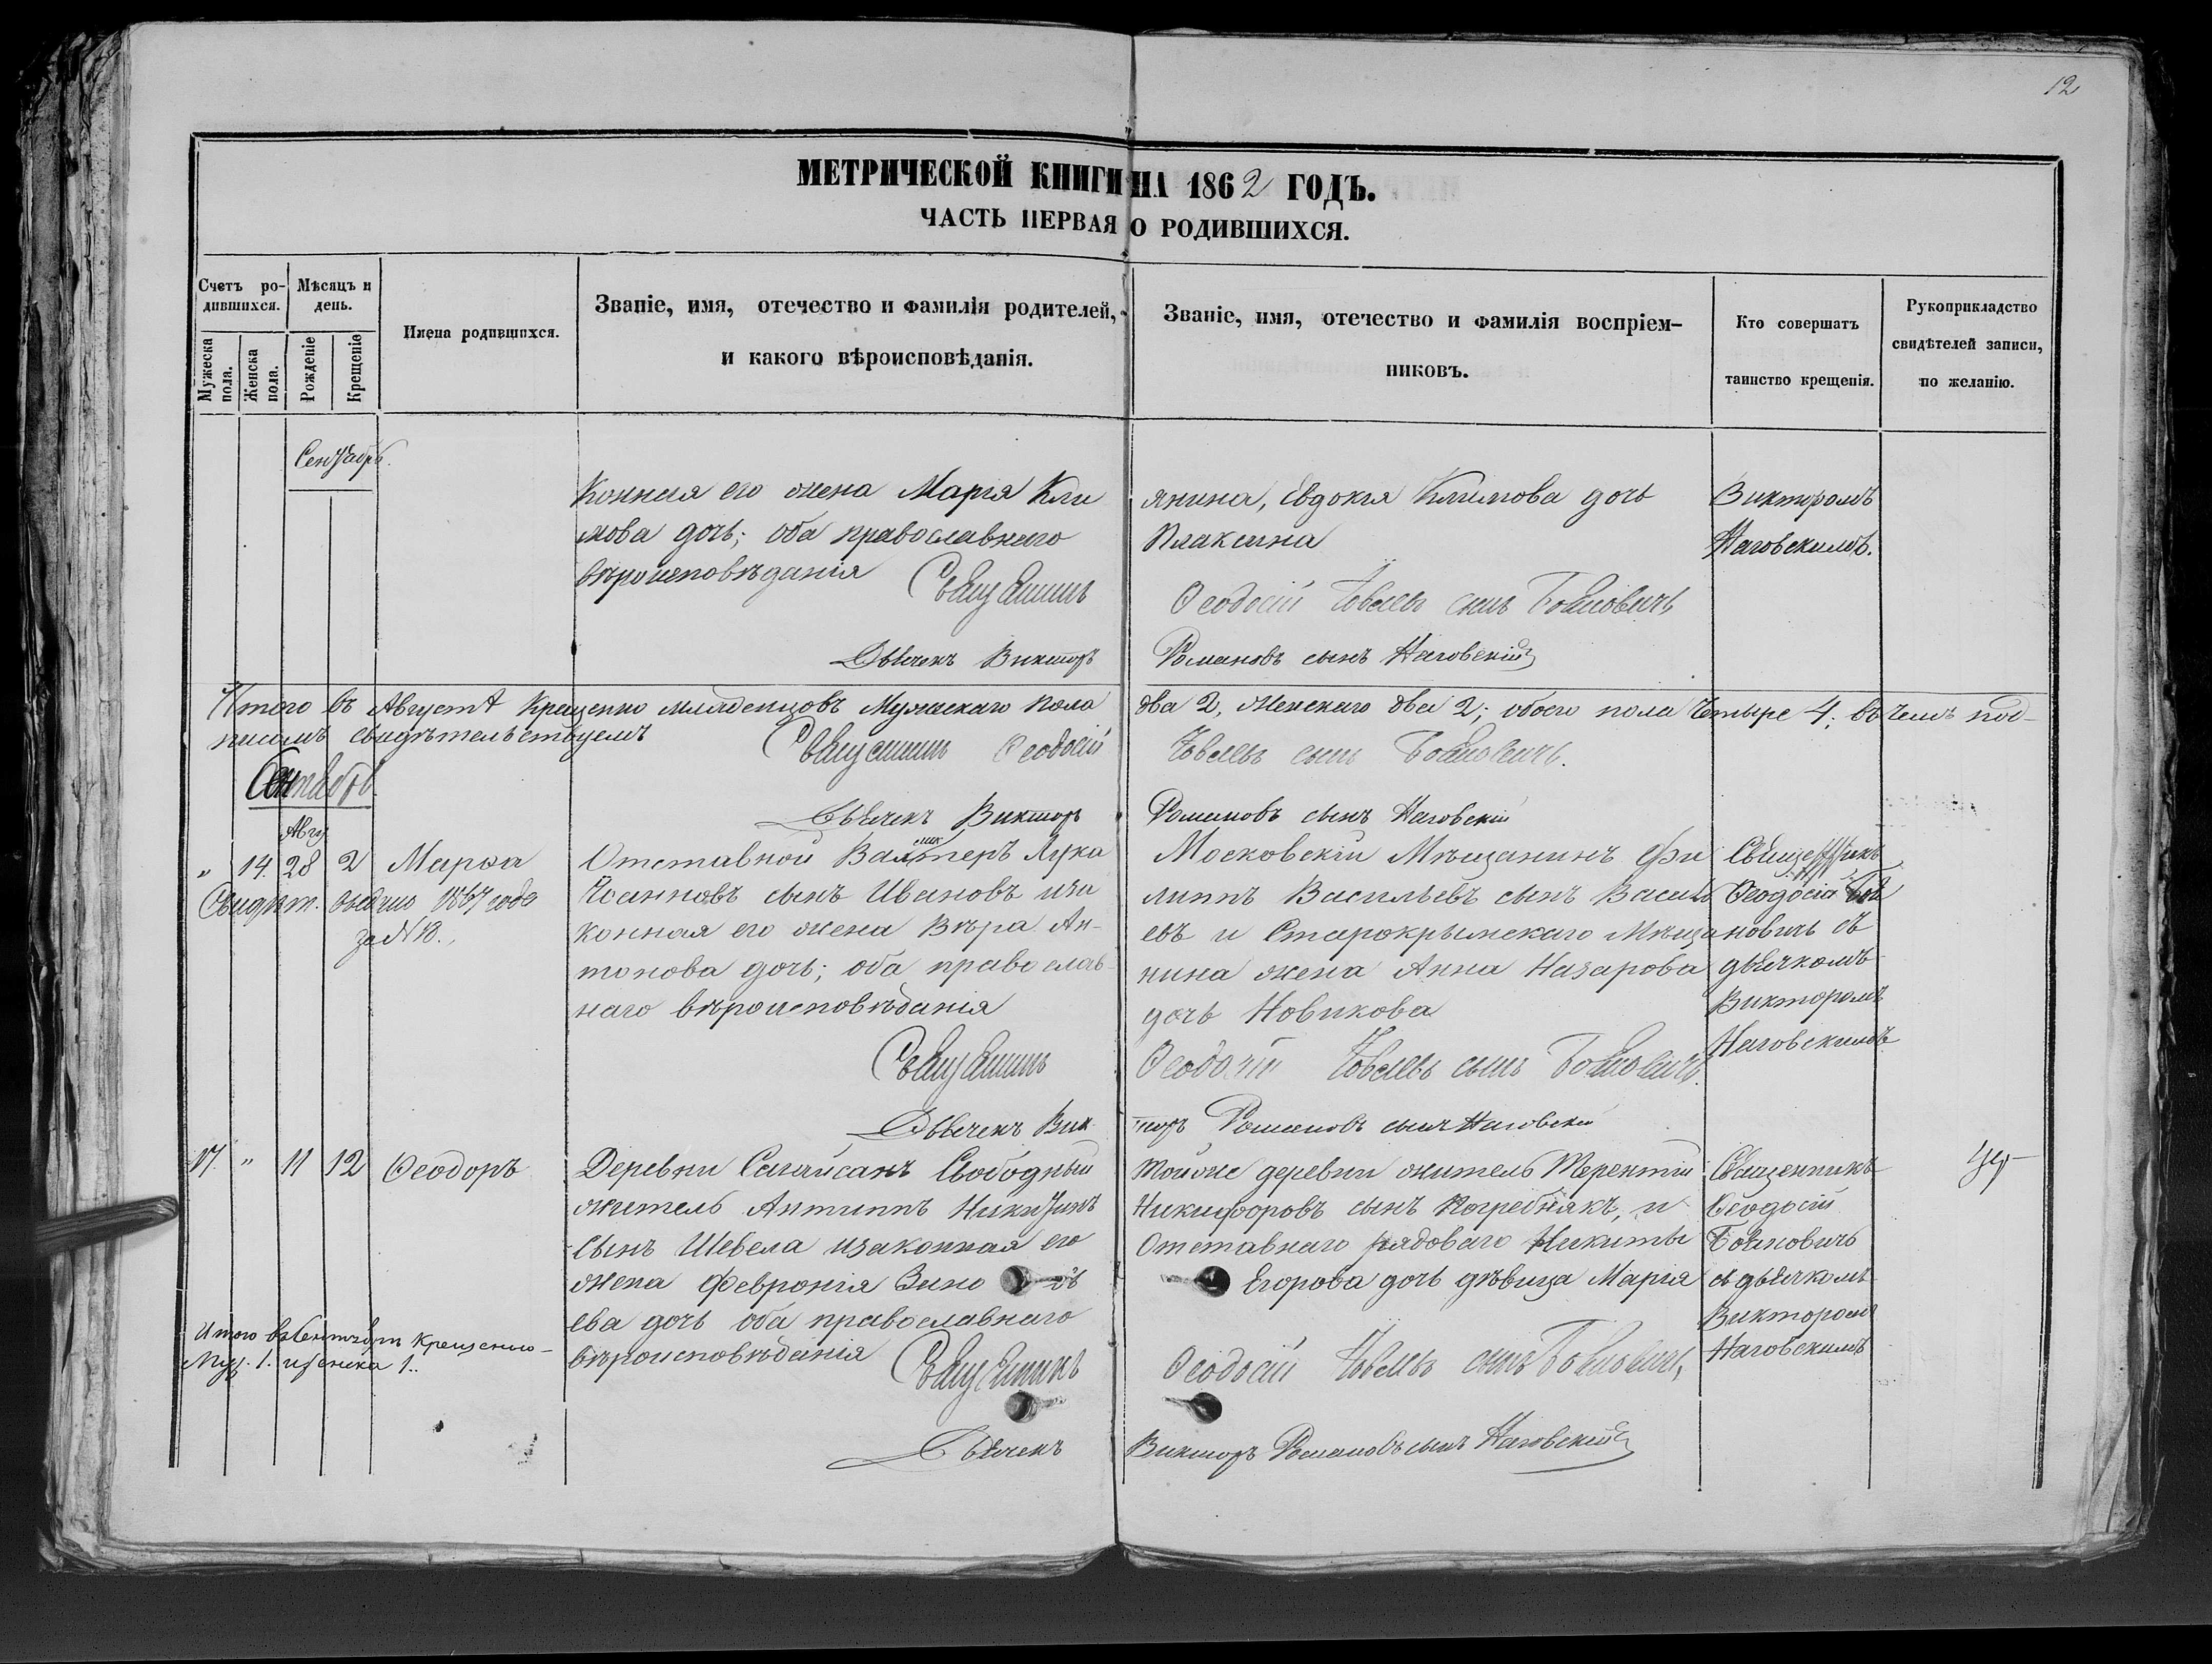 12
МЕТРИЧЕСКОЙ КНИГИ НА 1862 ГОДЪ.
ЧАСТЬ ПЕРВАЯ О РОДИВШИХСЯ.
Счетъ ро-
дившихся.
Мужеска пола.
Женска пола.
Мѣсяцъ и
день.
Рожденіе
Крещеніе
Имена родившихся.
Званіе, имя, отечество и фамилія родителей,
и какого вѣроисповѣданія.
Званіе, имя, отечество и фамилія воспріем-
никовъ.
Кто совершатъ
таинство крещенія.
Рукоприкладство
свидѣтелей записи,
по желанію.
Сентябрь.
конная его жена Марія Кли
мова дочь; оба православнаго
вѣроисповѣданія
Священникъ
Дьячекъ Викторъ
янина, Евдокія Климова дочь
Плаксина
Ѳеодосій сынъ Бойновичъ
Романовъ сынъ Наговскій
Викторомъ
Наговскимъ.
Итого въ Августѣ Крещено младенцовъ Мужескаго пола два 2, Женскаго два 2; обоего пола четыре 4; въ чемъ под-
писомъ свидѣтельствуемъ
Священникъ Ѳеодосій сынъ Бойновичъ.
Дьячекъ Викторъ Романовъ сынъ Наговскій
Сентябрь
Авгу
" 14. 28 2 Марѳа
Свидѣт. 1867 года
за № 18.
Отставной Лука
Іоанновъ сынъ Ивановъ иза
конная его жена Вѣра Ан-
тонова дочь; оба православ-
наго вѣроисповѣданія
Священникъ
Дьячекъ Вик
Московскій Мѣщанинъ Фи
липпъ Васильевъ сынъ Василь
евъ и Старокрымскаго Мѣща
нина жена Анна Назарова
дочь Новикова
Ѳеодосій сынъ Бойновичъ.
торъ Романовъ сынъ Наговскій
Священникъ
Ѳеодосій Бой
новичъ съ
дьячкомъ
Викторомъ
Наговскимъ
17. " 11 12 Ѳеодоръ
Деревни Свободный
житель Антипъ Никитинъ
сынъ Шебела изаконная его
жена Февронія Зино
ева дочь оба православнаго
вѣроисповѣданія
Священникъ
Дьячекъ
Тойже деревни житель Терентій
Никифоровъ сынъ Погребнякъ, и
Отставнаго рядоваго Никиты
Егорова дочь дѣвица Марія
Ѳеодосій сынъ Бойновичъ,
Викторъ Романовъ сынъ Наговскій
Священникъ
Ѳеодосій
Бойновичъ
съ дьячкомъ
Викторомъ
Наговскимъ
Итого въ Сентябрѣ крещенно-
Муж. 1. и женска 1..